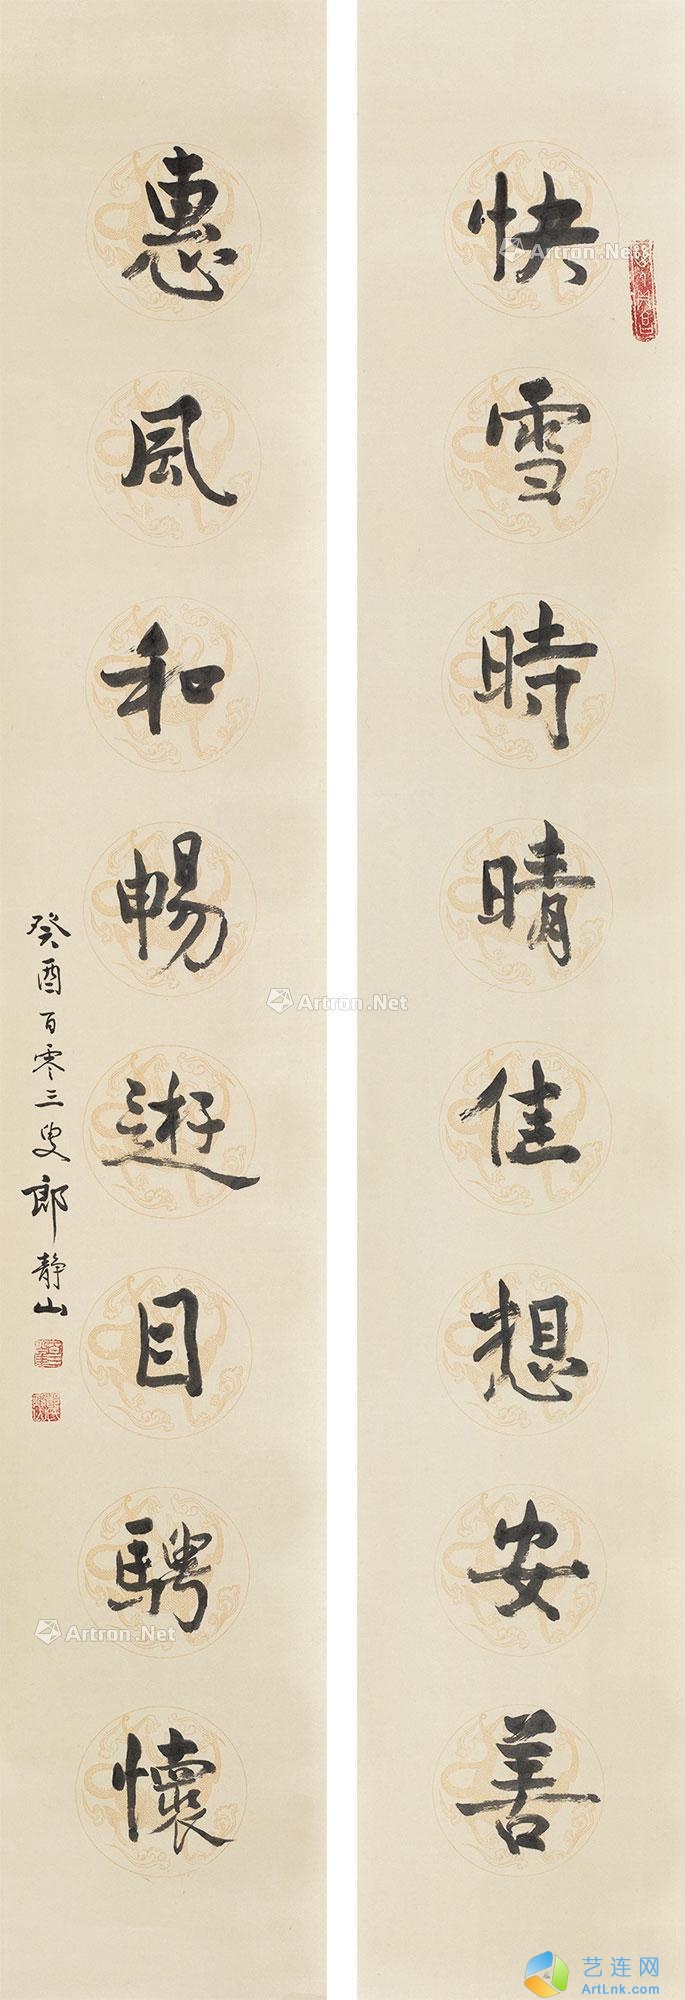 快雪時晴佳想安善
惠風和暢遊目騁懷
癸酉百零三叟郎静山
Artron.Net
Artron.Net
Artron.Net
艺连网
ArtLnk.com